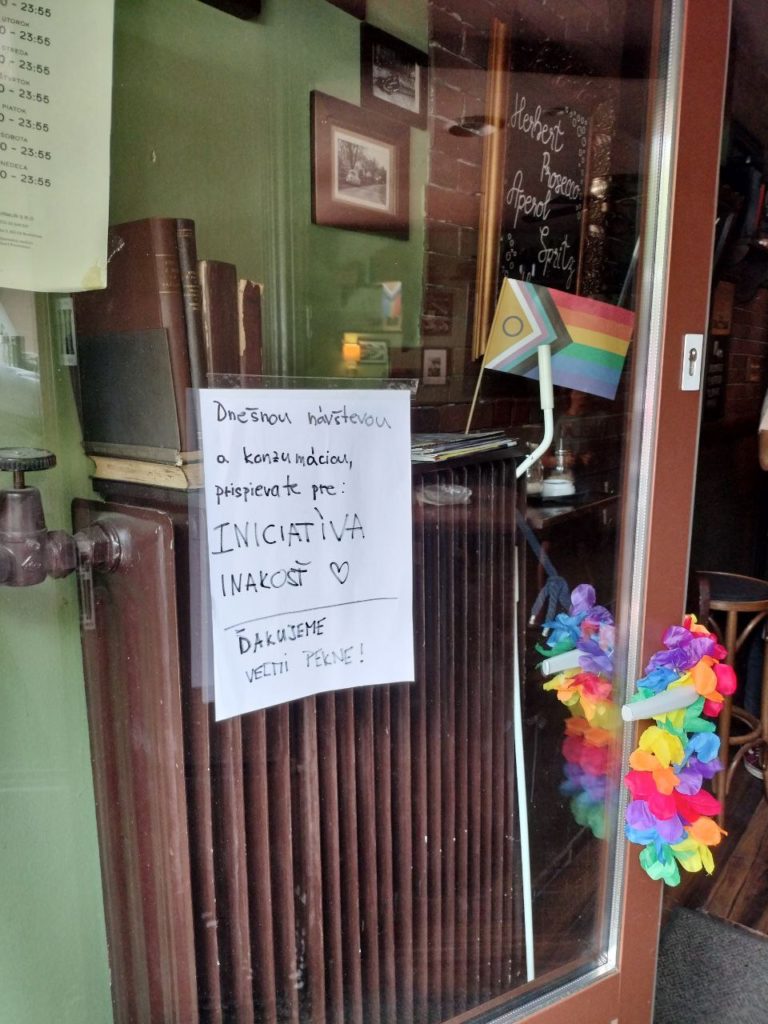 0 - 23:55
UTOROK
0 - 23:55
STREDA
0 - 23:55
ŠTVRTOK
0 - 23:55
PIATOK
0 - 23:55
SOBOTA
0 - 23:55
NEDEĽA
0 - 23:55
Herbert
Prosecco
Aperol
Spritz
Dnešnou návštevou
a konzumáciou,
prispievate pre:
INICIATÌVA
INAKOSŤ ♡
ĎAKUJEME
VEĽMI PEKNE!